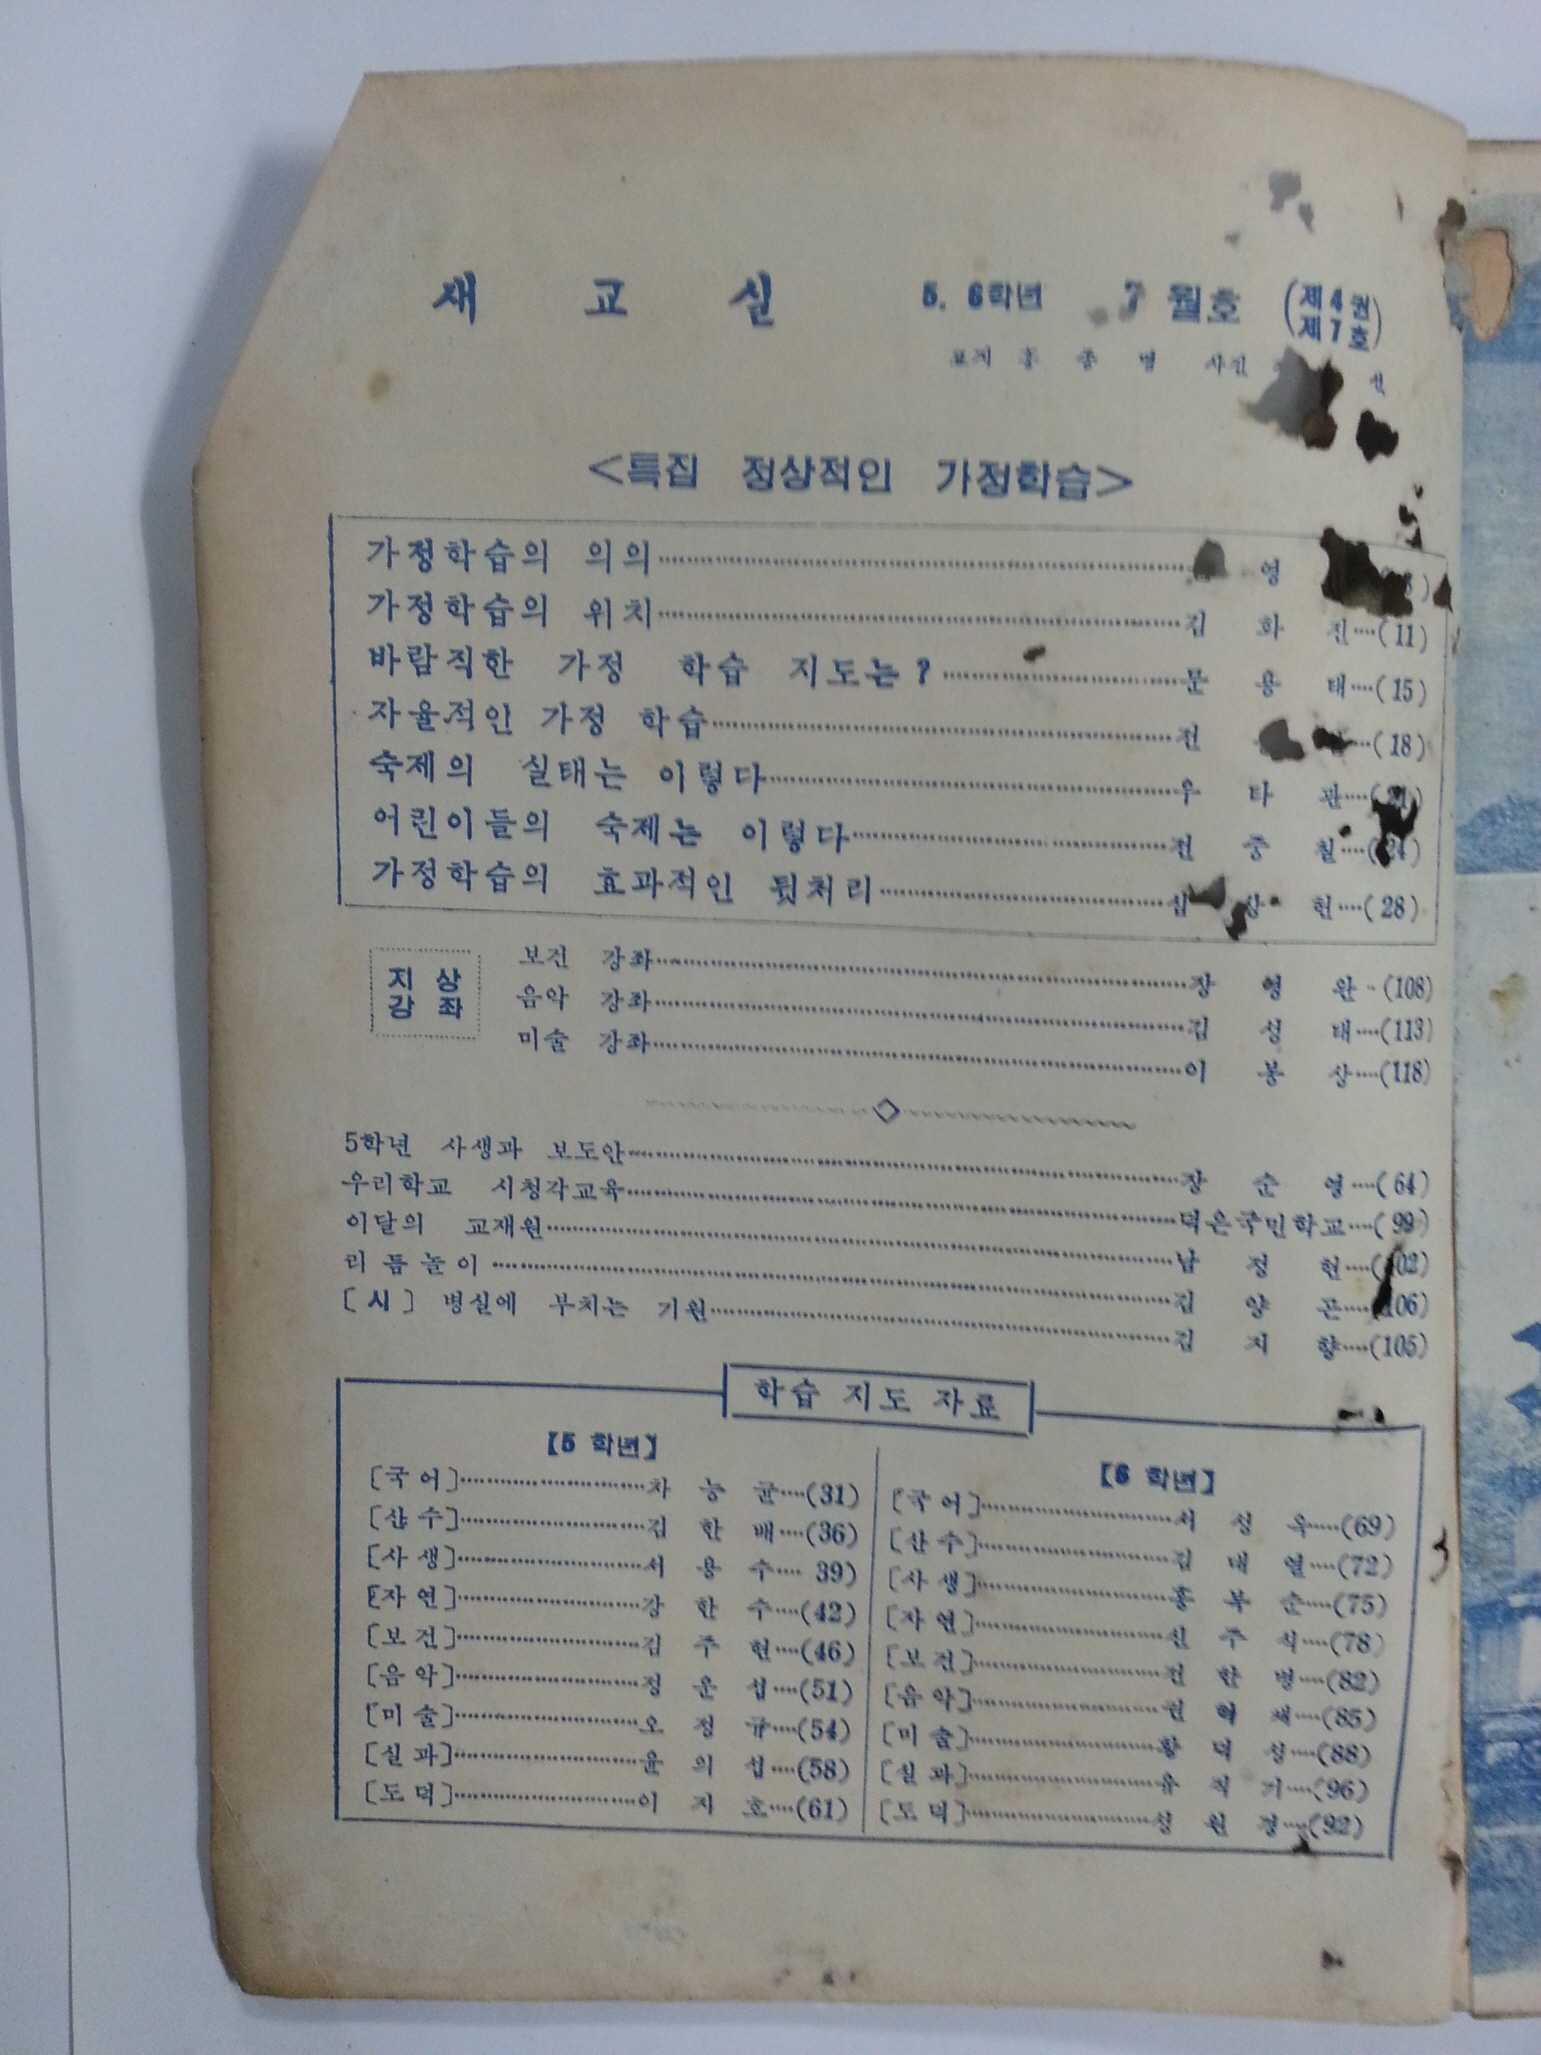 새 교 실 5. 6학년 7월호 (제4권 제7호)
표지 홍 종 명 사진
<특집 정상적인 가정학습>
가정학습의 의의 영
가정학습의 위치 김 화 진 (11)
바람직한 가정 학습 지도는? 문 용 태 (15)
자율적인 가정 학습 전 (18)
숙제의 실태는 이렇다 우 타 관
어린이들의 숙제는 이렇다 전 중 칠 (24)
가정학습의 효과적인 뒷처리 심 상 헌 (28)
지상강좌
보건 강좌 장 영 완 (108)
음악 강좌 김 성 태 (113)
미술 강좌 이 봉 상 (118)
5학년 사생과 보도안 장 순 영 (64)
우리학교 시청각교육 덕은국민학교 (99)
이달의 교재원 남 정 헌 (102)
리듬놀이 김 양 곤 (106)
[시] 병실에 부치는 기원 김 지 향 (105)
학습 지도 자료
【5 학년】
[국어] 차 능 균 (31)
[산수] 김 한 배 (36)
[사생] 서 용 수 39)
[자연] 강 한 수 (42)
[보건] 김 주 현 (46)
[음악] 정 운 섭 (51)
[미술] 오 정 규 (54)
[실과] 윤 의 섭 (58)
[도덕] 이 지 호 (61)
【6 학년】
[국어] 서 성 옥 (69)
[산수] 김 대 열 (72)
[사생] 홍 부 순 (75)
[자연] 신 주 식 (78)
[보건] 전 한 병 (82)
[음악] 권 혁 (85)
[미술] 황 덕 성 (88)
[실과] 유 직 기 (96)
[도덕] 성 원 경 (92)